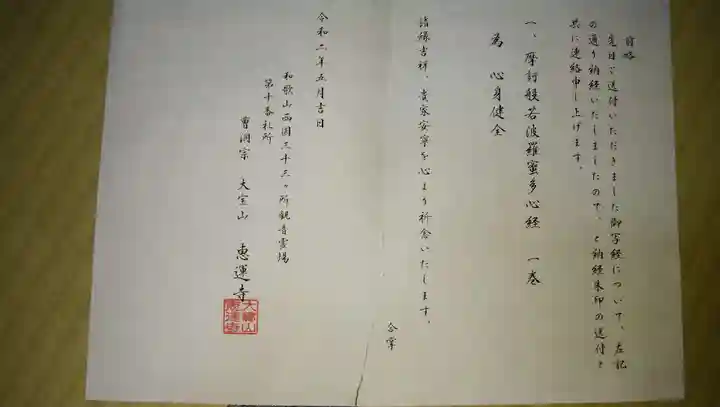 前略
先日ご送付いただきました御写経について、左記
の通り納経いたしましたので、と納経朱印の送付と
共に連絡申し上げます。
一、摩訶般若波羅蜜多心経 一巻
為 心身健全
諸縁吉祥、貴家安寧を心より祈念いたします。
合掌
令和二年五月吉日
和歌山西国三十三ヶ所観音霊場
第十番札所
曹洞宗 大宝山 恵運寺